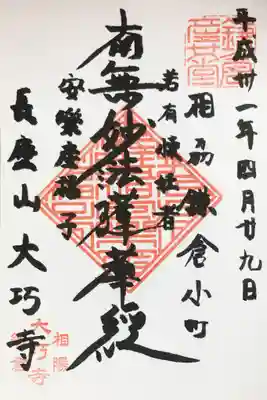 平成卅一年四月廿九日
相刕鎌倉小町
若有懐妊者
南無妙法蓮華経
安樂産福子
長慶山 大巧寺
相陽
大巧寺